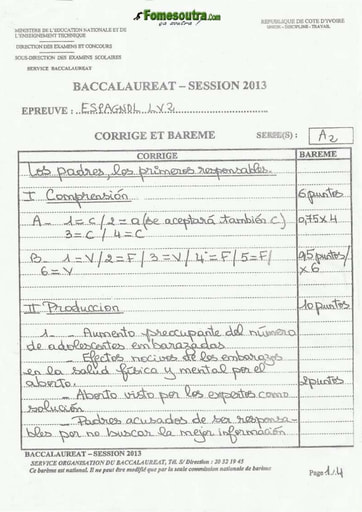 Fomesoutra.com
ça soutra !
MINISTERE DE L'EDUCATION NATIONALE ET DE
L'ENSEIGNEMENT TECHNIQUE
REPUBLIQUE DE COTE D'IVOIRE
UNION - DISCIPLINE - TRAVAIL
DIRECTION DES EXAMENS ET CONCOURS
SOUS-DIRECTION DES EXAMENS SCOLAIRES
SERVICE BACCALAUREAT
BACCALAUREAT – SESSION 2013
EPREUVE : ESPAGNOL LV2
CORRIGE ET BAREME SERIE(S) : A2
CORRIGE BAREME
Los padres, los primeros responsables.
I Comprensión 6 puntos
A - 1 = c / 2 = a (se aceptará también c) 0,75 x 4
3 = C / 4 = C
B - 1 = V / 2 = F / 3 = V / 4 = F / 5 = F / 0,5 puntos
6 = V x 6
II Produccion 10 puntos
1 - - Aumento preoccupante del número
de adolescentes embarazadas
- Efectos nocivos de los embarazos
en la salud física y mental por el
aborto. 2 puntos
- Aborto visto por los expertos como
solución
- Padres acusados de ser responsa-
bles por no buscar la mejor información
BACCALAUREAT – SESSION 2013
SERVICE ORGANISATION DU BACCALAUREAT, Tél. S/ Direction : 20 32 19 43
Ce barème est national. Il ne peut être modifié que par la seule commission nationale de barème
Page 1/4